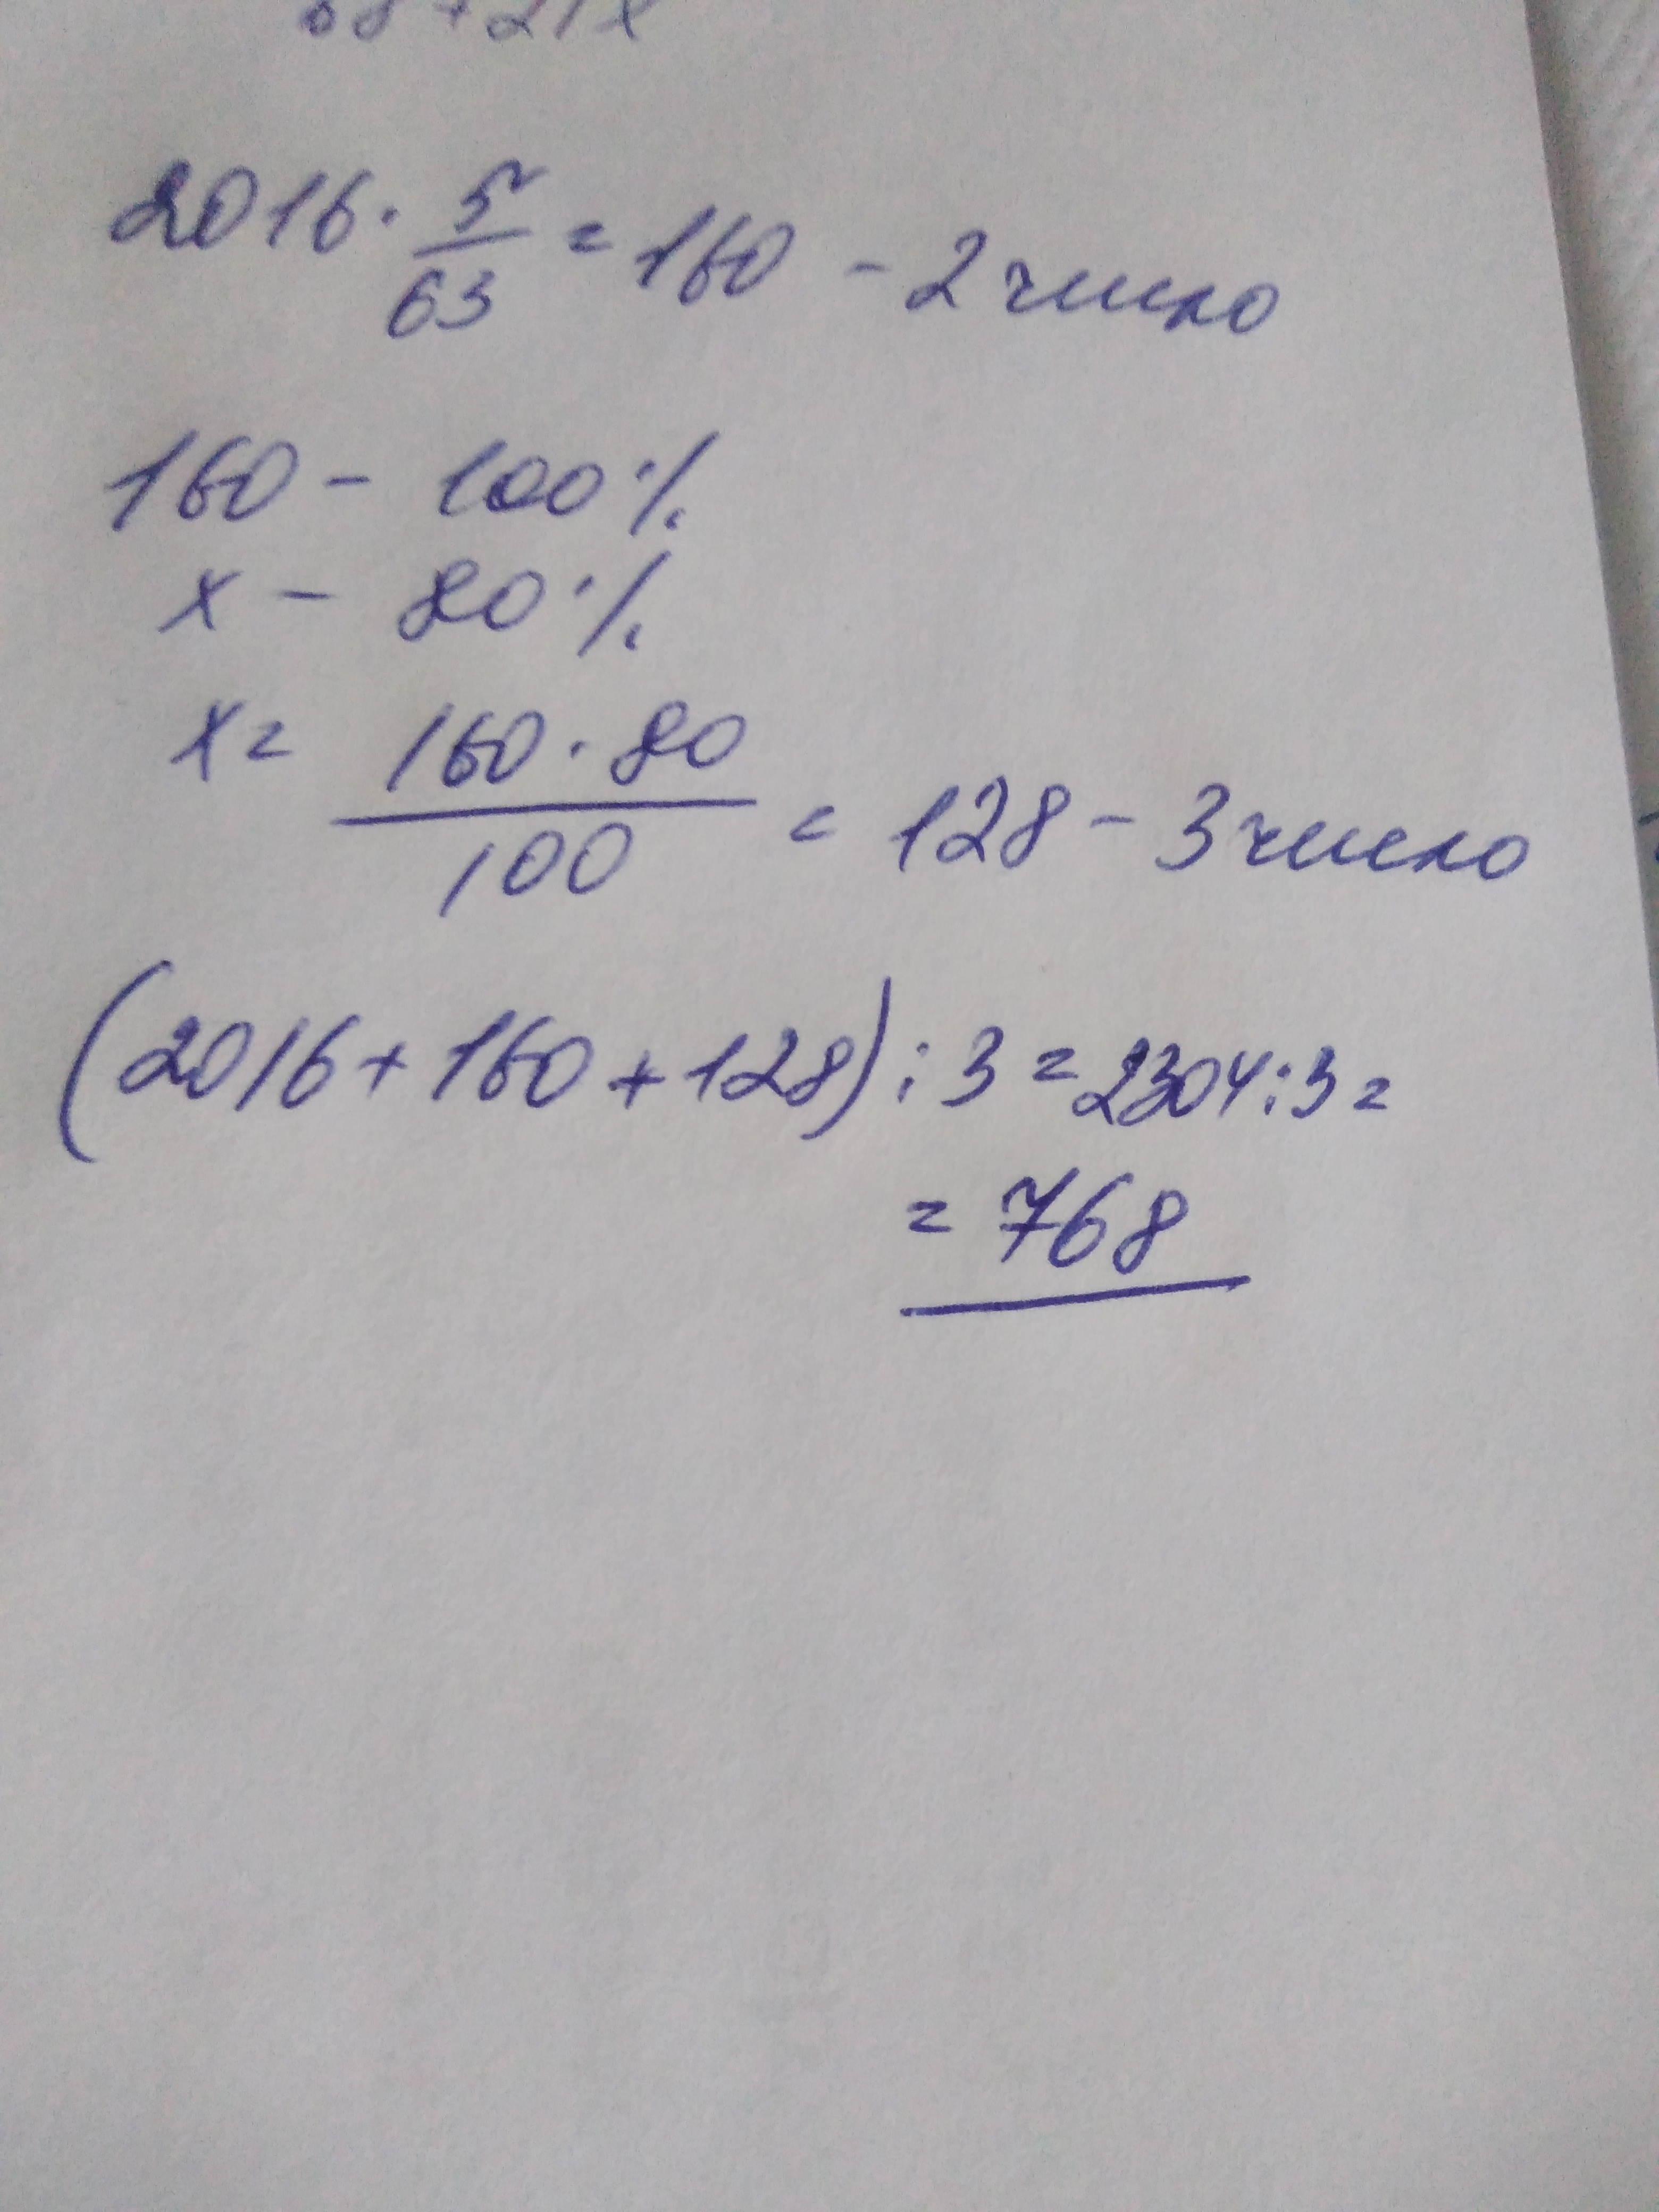 2016 · 5/63 = 160 - 2 число
160 - 100%
x - 80%
x = 160 · 80 / 100 = 128 - 3 число
(2016 + 160 + 128) : 3 = 2304 : 3 =
= 768